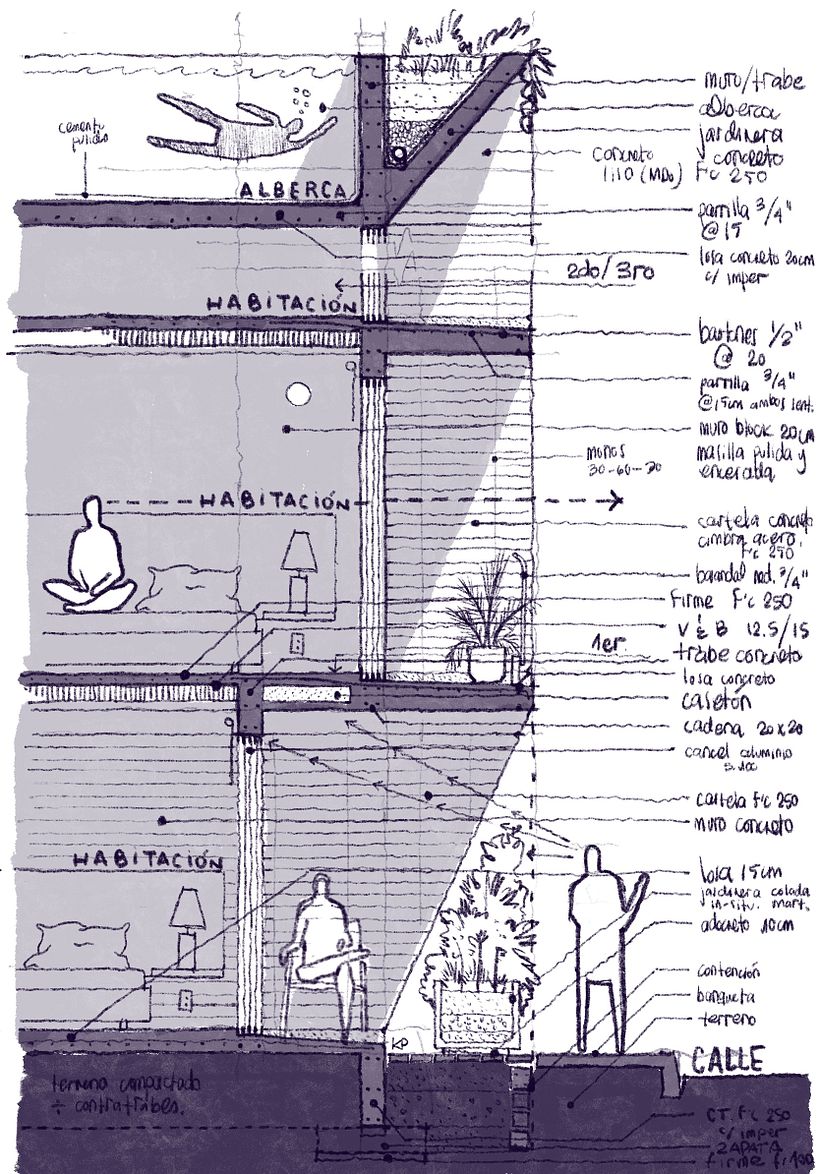 muro/trabe
alberca
cemento
pulido
jardinera
concreto
1:10 (MDO)
y concreto
F'c 250
ALBERCA
parrilla 3/4"
@15
losa concreto 20cm
c/ imper
2do/3ro
HABITACIÓN
bastones 1/2"
@ 20
parrilla 3/4"
@15cm ambos sent.
muro block 20cm
masilla pulida y
encerada
muros
HABITACIÓN
cartela concreto
cimbra acero.
F'c 250
barandal red. 3/4"
firme F'c 250
V & B 12.5/15
1er
trabe concreto
losa concreto
casetón
cadena 20x20
cancel aluminio
cartela F'c 250
muro concreto
HABITACIÓN
losa 15cm
jardinera colada
in-situ. mart.
adocreto 10cm
contención
banqueta
terreno
KP
CALLE
terreno compactado
÷ contratrabes.
CT. F'c 250
c/ imper
ZAPATA
firme f'c 100